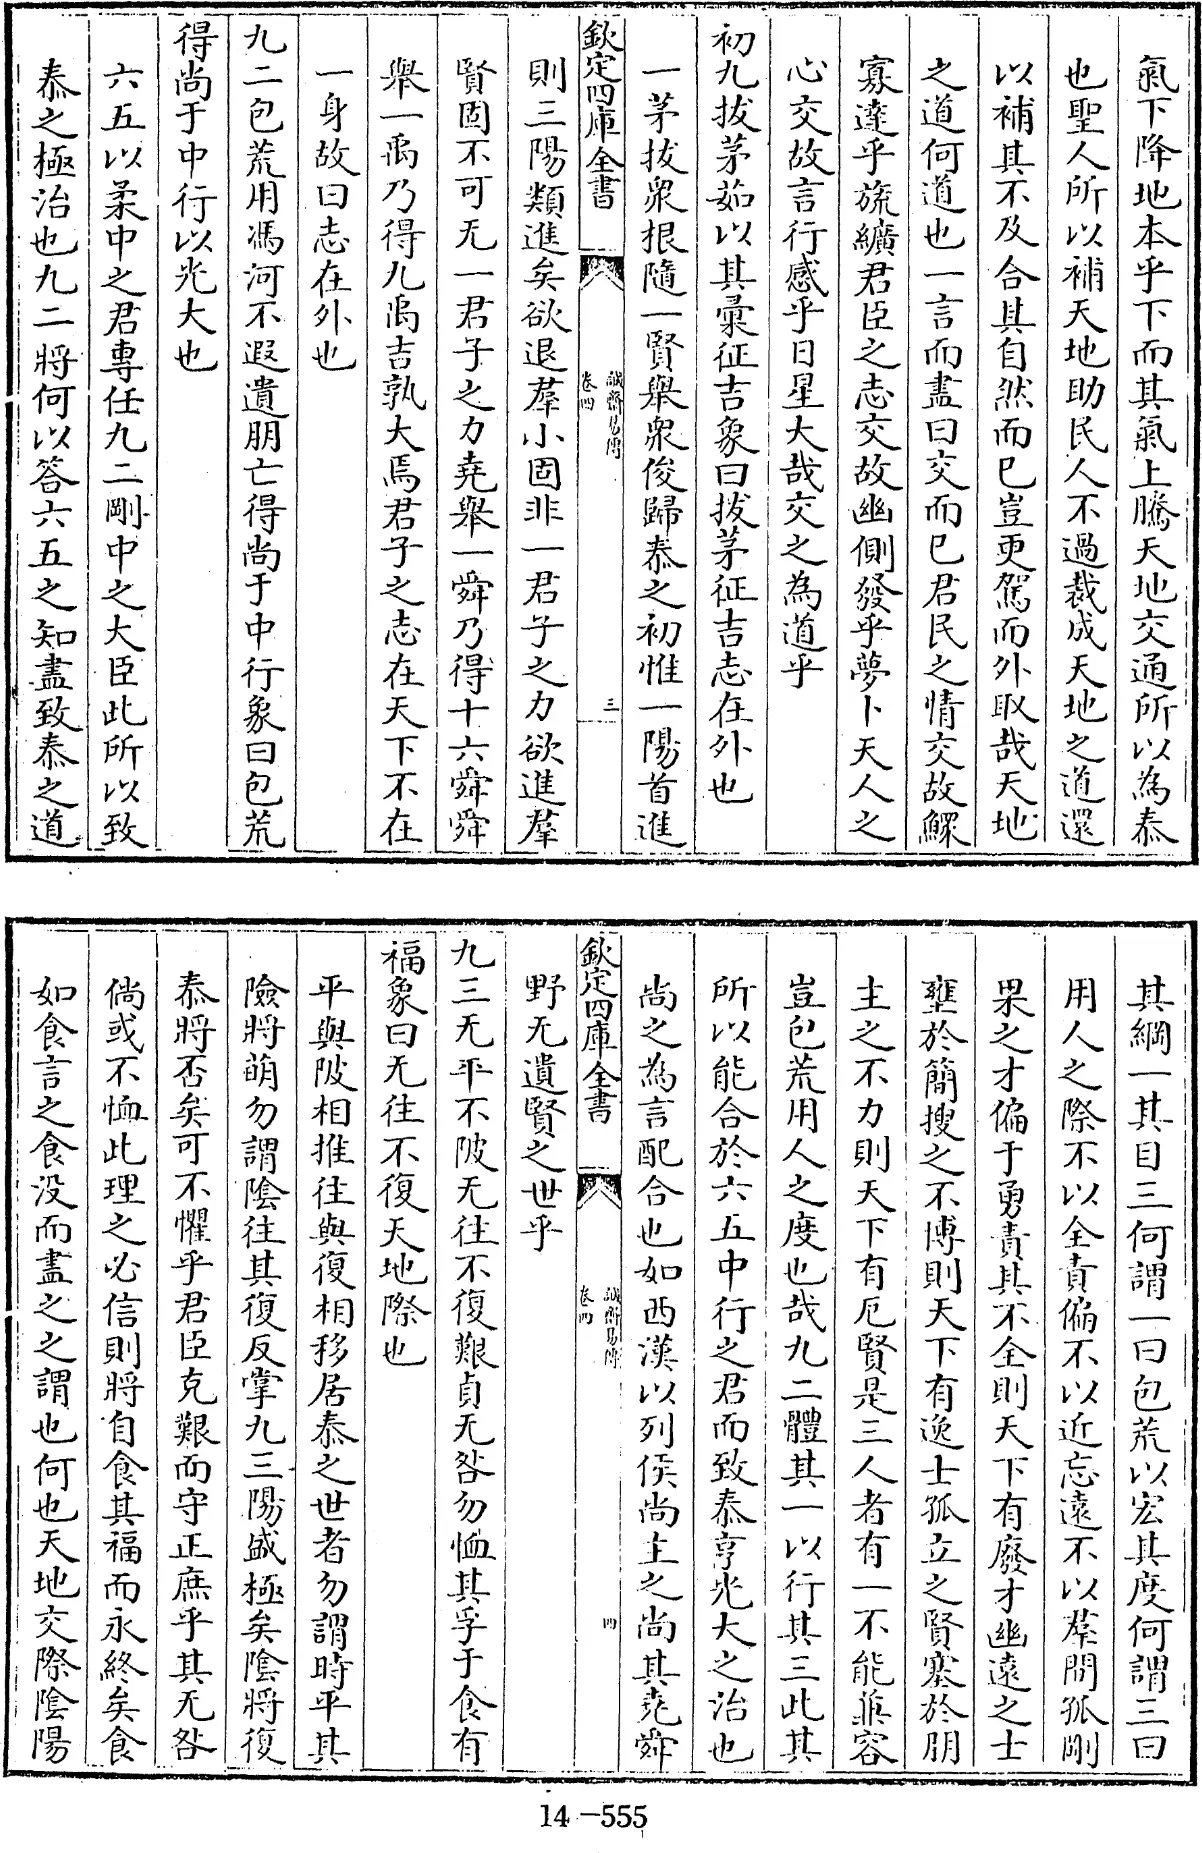 氣下降地本乎下而其氣上騰天地交通所以為泰
也聖人所以補天地助民人不過裁成天地之道還
以補其不及合其自然而已豈更駕而外取哉天地
之道何道也一言而盡曰交而已君民之情交故鰥
寡達乎旒纊君臣之志交故幽側發乎夢卜天人之
心交故言行感乎日星大哉交之為道乎
初九拔茅茹以其彚征吉象曰拔茅征吉志在外也
一茅拔衆根隨一賢舉衆俊歸泰之初惟一陽首進
欽定四庫全書
誠齋易傳
卷四
三
則三陽類進矣欲退羣小固非一君子之力欲進羣
賢固不可无一君子之力堯舉一舜乃得十六舜舜
舉一禹乃得九禹吉孰大焉君子之志在天下不在
一身故曰志在外也
九二包荒用馮河不遐遺朋亡得尚于中行象曰包荒
得尚于中行以光大也
六五以柔中之君專任九二剛中之大臣此所以致
泰之極治也九二將何以答六五之知盡致泰之道
其綱一其目三何謂一曰包荒以宏其度何謂三曰
用人之際不以全責偏不以近忘遠不以羣間孤剛
果之才偏于勇責其不全則天下有廢才幽遠之士
壅於簡搜之不博則天下有逸士孤立之賢塞於朋
主之不力則天下有厄賢是三人者有一不能兼容
豈包荒用人之度也哉九二體其一以行其三此其
所以能合於六五中行之君而致泰亨光大之治也
尚之為言配合也如西漢以列侯尚主之尚其堯舜
欽定四庫全書
誠齋易傳
卷四
四
野无遺賢之世乎
九三无平不陂无往不復艱貞无咎勿恤其孚于食有
福象曰无往不復天地際也
平與陂相推往與復相移居泰之世者勿謂時平其
險將萌勿謂陰往其復反掌九三陽盛極矣陰將復
泰將否矣可不懼乎君臣克艱而守正庶乎其无咎
倘或不恤此理之必信則將自食其福而永終矣食
如食言之食沒而盡之之謂也何也天地交際陰陽
14-555